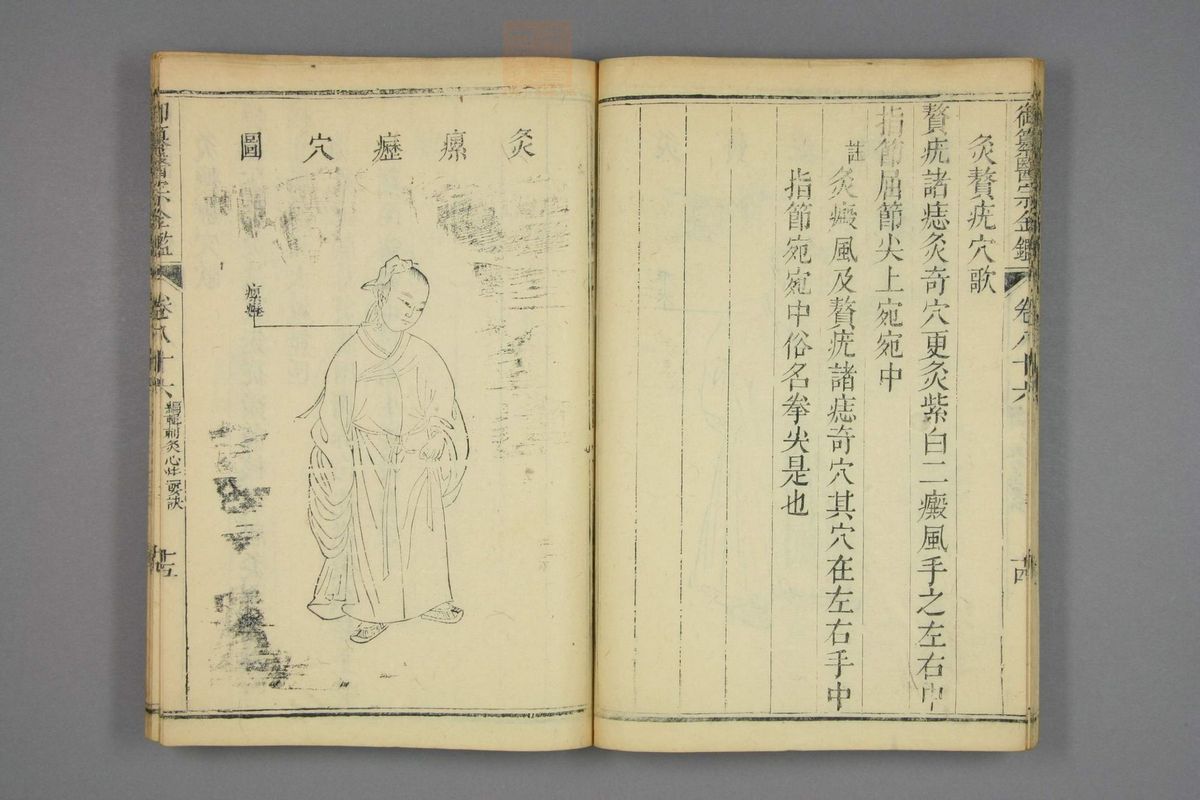 御纂醫宗金鑑 卷八十六 十四
灸贅疣穴歌
贅疣諸痣灸奇穴更灸紫白二癜風手之左右中
指節屈節尖上宛宛中
註 灸癜風及贅疣諸痣奇穴其穴在左右手中
指節宛宛中俗名拳尖是也
灸瘰癧穴圖
瘰癧
御纂醫宗金鑑 卷八十六 編輯刺灸心法要訣 十五